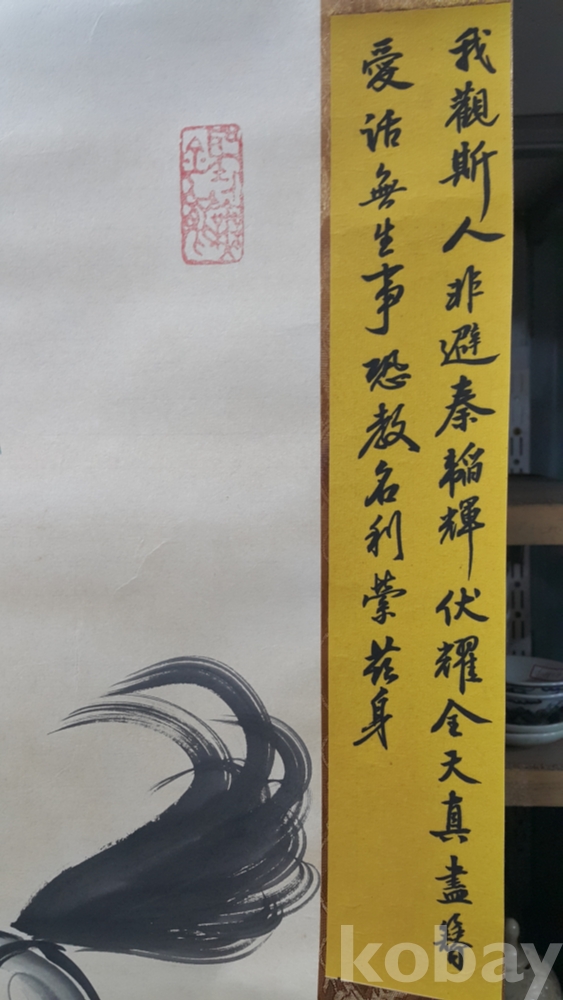 我觀斯人非避秦韜輝伏耀全天真盡將
愛話無生事恐教名利縈茲身
kobay